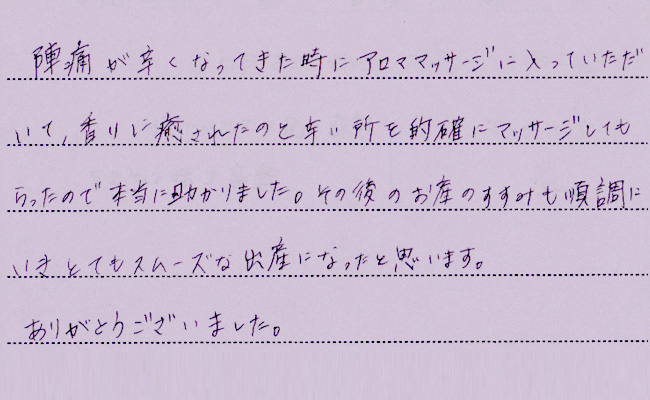 陣痛が辛くなってきた時にアロママッサージに入っていただ
いて、香りに癒されたのと辛い所を的確にマッサージしても
らったので本当に助かりました。その後のお産のすすみも順調に
いきとてもスムーズな出産になったと思います。
ありがとうございました。